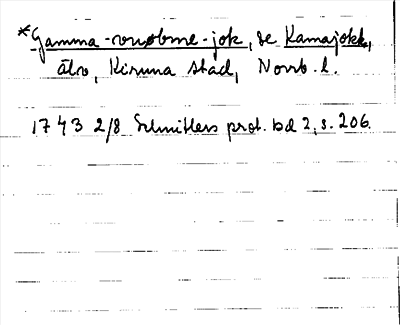 *Gamma-vuobme-jok, se Kamajokk,
älv, Kiruna stad, Norrb. l.
1743 2/8 Schnitlers prot. bd 2, s. 206.